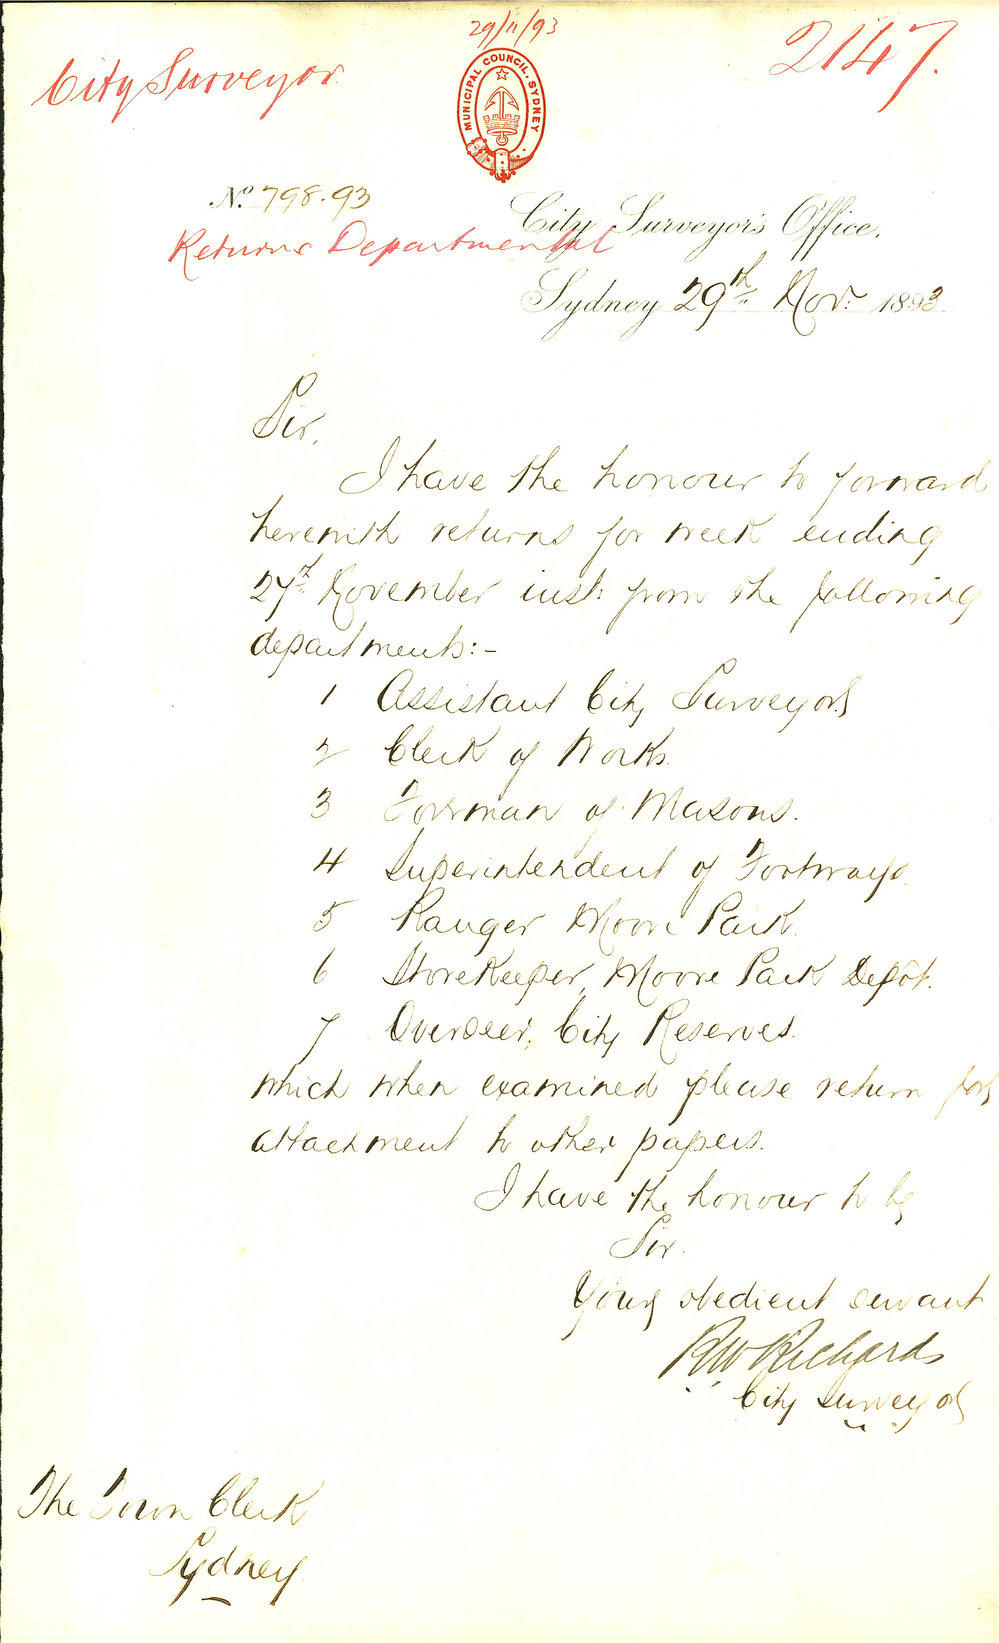 29/11/93
2147.
City Surveyor.
MUNICIPAL COUNCIL. SYDNEY
No. 798.93
City Surveyor's Office.
Returns Departmental
Sydney 29th Nov: 1893
Sir,
I have the honour to forward
herewith returns for week ending
27th November inst: from the following
departments:-
1 Assistant City Surveyor
2 Clerk of Works.
3 Foreman of Masons.
4 Superintendent of Footways.
5 Ranger Moore Park.
6 Storekeeper, Moore Park Depôt.
7 Overseer, City Reserves.
which when examined please return for
attachment to other papers.
I have the honour to be
Sir.
Your obedient servant
RW Richards
City Surveyor
The Town Clerk
Sydney.